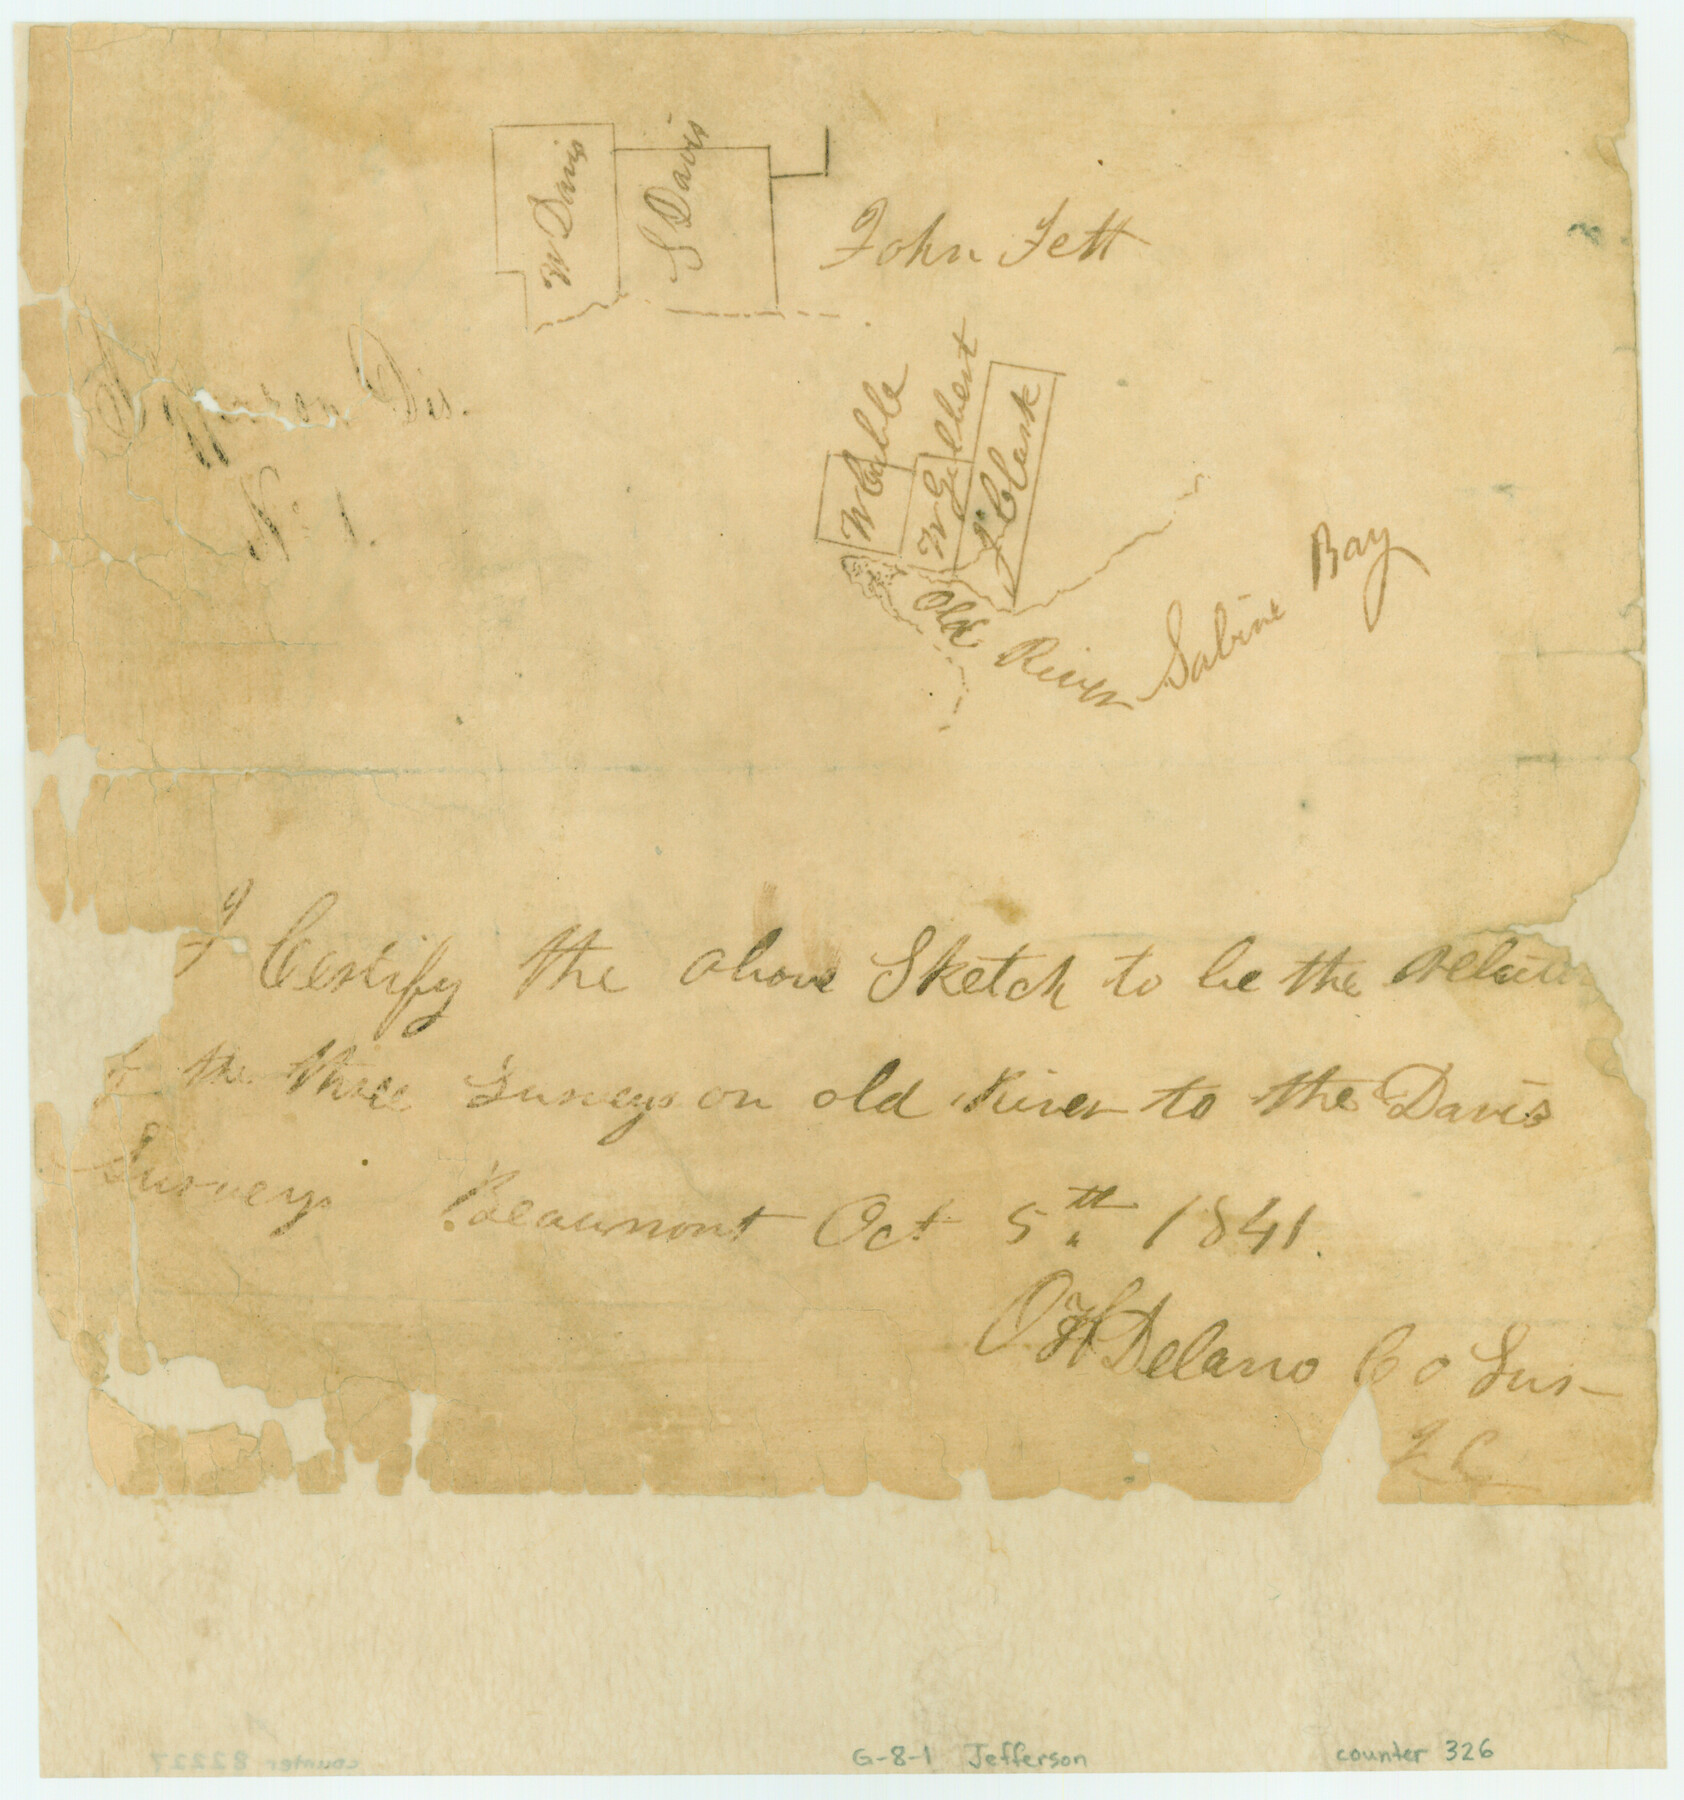 W Davis
S Davis
John Jett
W Cable
W Gilbert
J Clark
Old River
Sabine Bay
Jefferson Dis.
No 1.
I Certify the above Sketch to be the
the three Surveys on old River to the Davis
Surveys Beaumont Oct 5th 1841.
O H Delano Co Sur
J C
G-8-1 Jefferson
counter 326
counter 82227